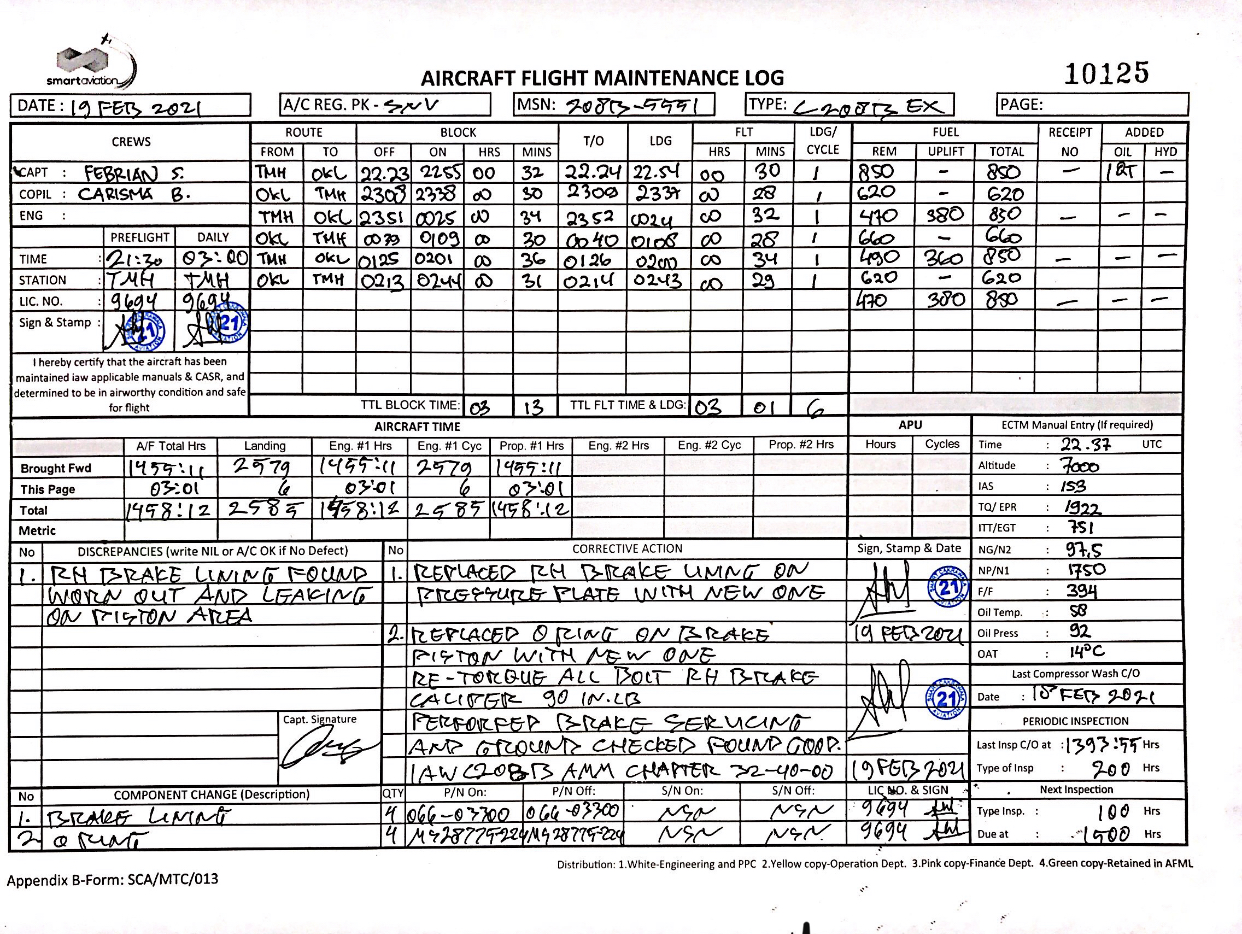 smartaviation
AIRCRAFT FLIGHT MAINTENANCE LOG
10125
DATE : 19 FEB 2021 A/C REG. PK - SNV MSN: 208B-5551 TYPE: C-208B EX PAGE:
CREWS ROUTE BLOCK T/O LDG FLT LDG/CYCLE FUEL RECEIPT NO ADDED
FROM TO OFF ON HRS MINS HRS MINS REM UPLIFT TOTAL OIL HYD
CAPT : FEBRIAN S. TMH OKL 22.23 2255 00 32 22.24 22.54 00 30 1 850 - 850 - 1QT -
COPIL : CARISMA B. OKL TMH 2308 2338 00 30 2309 2337 00 28 1 620 - 620
ENG : TMH OKL 2351 0025 00 34 2352 0024 00 32 1 470 380 850 - - -
PREFLIGHT DAILY OKL TMH 0039 0109 00 30 0040 0108 00 28 1 660 - 660
TIME : 21:30 03:00 TMH OKL 0125 0201 00 36 0126 0200 00 34 1 490 360 850 - - -
STATION : TMH TMH OKL TMH 0213 0244 00 31 0214 0243 00 29 1 620 - 620
LIC. NO. : 9694 9694 470 380 850 - - -
Sign & Stamp : 21 21
I hereby certify that the aircraft has been
maintained iaw applicable manuals & CASR, and
determined to be in airworthy condition and safe
for flight
TTL BLOCK TIME: 03 13 TTL FLT TIME & LDG: 03 01 6
AIRCRAFT TIME APU ECTM Manual Entry (If required)
A/F Total Hrs Landing Eng. #1 Hrs Eng. #1 Cyc Prop. #1 Hrs Eng. #2 Hrs Eng. #2 Cyc Prop. #2 Hrs Hours Cycles
Brought Fwd 1455:11 2579 1455:11 2579 1455:11
This Page 03:01 6 03:01 6 03:01
Total 1458:12 2585 1458:12 2585 1458:12
Metric
Time : 22.37 UTC
Altitude : 7000
IAS : 153
TQ/ EPR : 1922
ITT/EGT : 751
NG/N2 : 97,5
NP/N1 : 1750
F/F : 394
Oil Temp. : 58
Oil Press : 92
OAT : 14°C
Last Compressor Wash C/O
Date : 18 FEB 2021
PERIODIC INSPECTION
Last Insp C/O at : 1393:55 Hrs
Type of Insp : 200 Hrs
Next Inspection
Type Insp. : 100 Hrs
Due at : 1500 Hrs
No DISCREPANCIES (write NIL or A/C OK if No Defect) No CORRECTIVE ACTION Sign, Stamp & Date
1. RH BRAKE LINING FOUND 1. REPLACED RH BRAKE LINING ON
WORN OUT AND LEAKING PRESSURE PLATE WITH NEW ONE 21
ON PISTON AREA
2. REPLACED O RING ON BRAKE 19 FEB 2021
PISTON WITH NEW ONE
RE-TORQUE ALL BOLT RH BRAKE
CALIPER 90 IN.LB 21
Capt. Signature PERFORFED BRAKE SERVICING
AND GROUND CHECKED FOUND GOOD.
IAW C208B AMM CHAPTER 32-40-00 19 FEB 2021
No COMPONENT CHANGE (Description) QTY P/N On: P/N Off: S/N On: S/N Off: LIC NO. & SIGN
1. BRAKE LINING 4 066-03300 066-03300 NSN NSN 9694
2 O RING 4 MS28775-224 MS28775-224 NSN NSN 9694
Distribution: 1.White-Engineering and PPC 2.Yellow copy-Operation Dept. 3.Pink copy-Finance Dept. 4.Green copy-Retained in AFML
Appendix B-Form: SCA/MTC/013